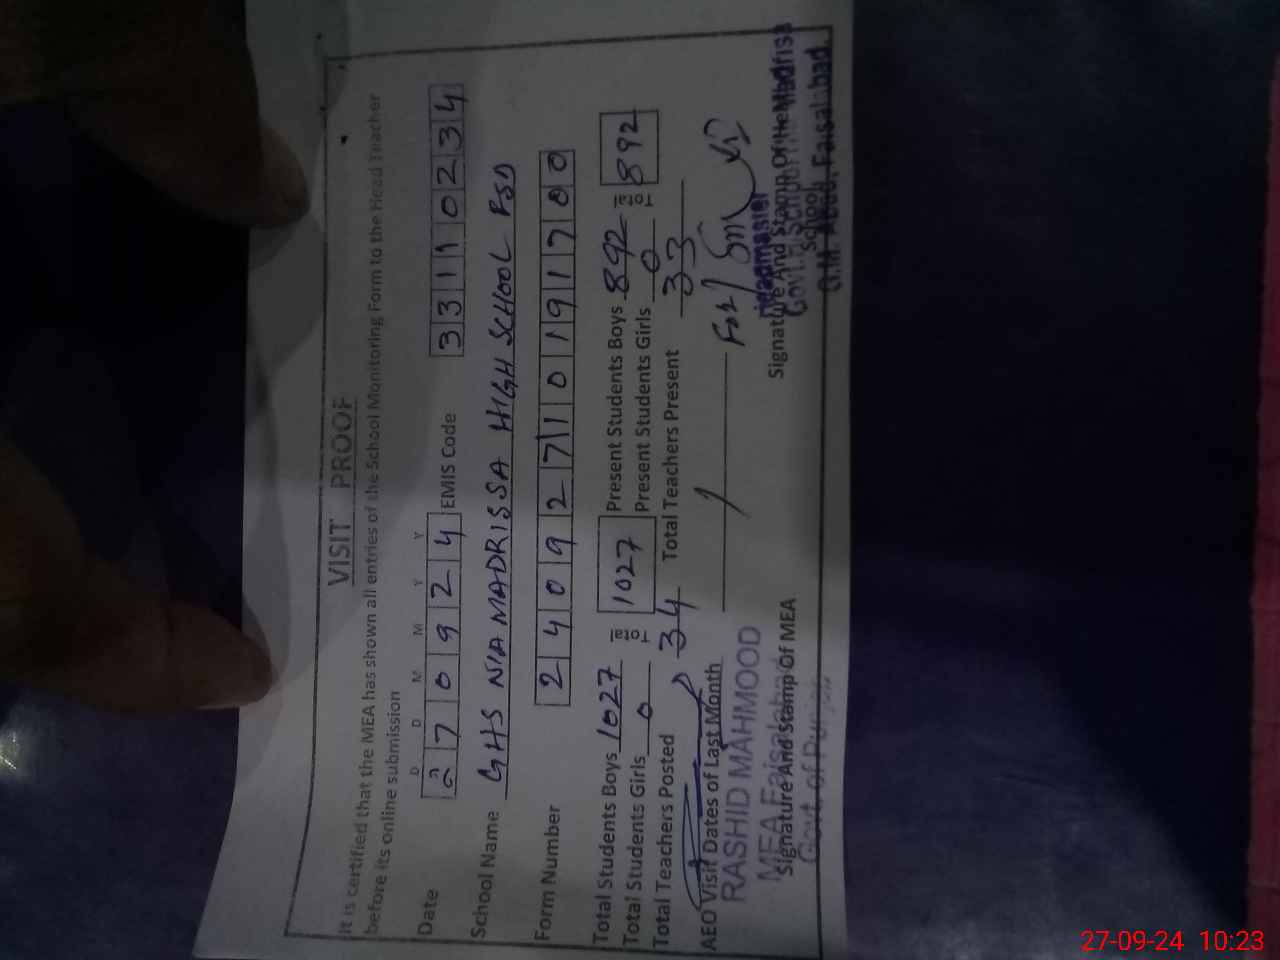 VISIT PROOF
It is certified that the MEA has shown all entries of the School Monitoring Form to the Head Teacher
before its online submission
D D M M Y Y
Date 2 7 0 9 2 4 EMIS Code 3 3 1 1 0 2 3 4
School Name GHS NIA MADRISSA HIGH SCHOOL FSD
Form Number 2 4 0 9 2 7 1 0 1 9 1 7 0 0
Total Students Boys 1027 Total 1027 Present Students Boys 892 Total 892
Total Students Girls 0 Present Students Girls 0
Total Teachers Posted 34 Total Teachers Present 33
AEO Visit Dates of Last Month
For
RASHID MAHMOOD
MEA Faisalabad
Signature And Stamp Of MEA
Govt. of Punjab
Headmaster
Signature And Stamp Of He Madrisa
Govt. School
School
G.M. Abad, Faisalabad.
27-09-24 10:23